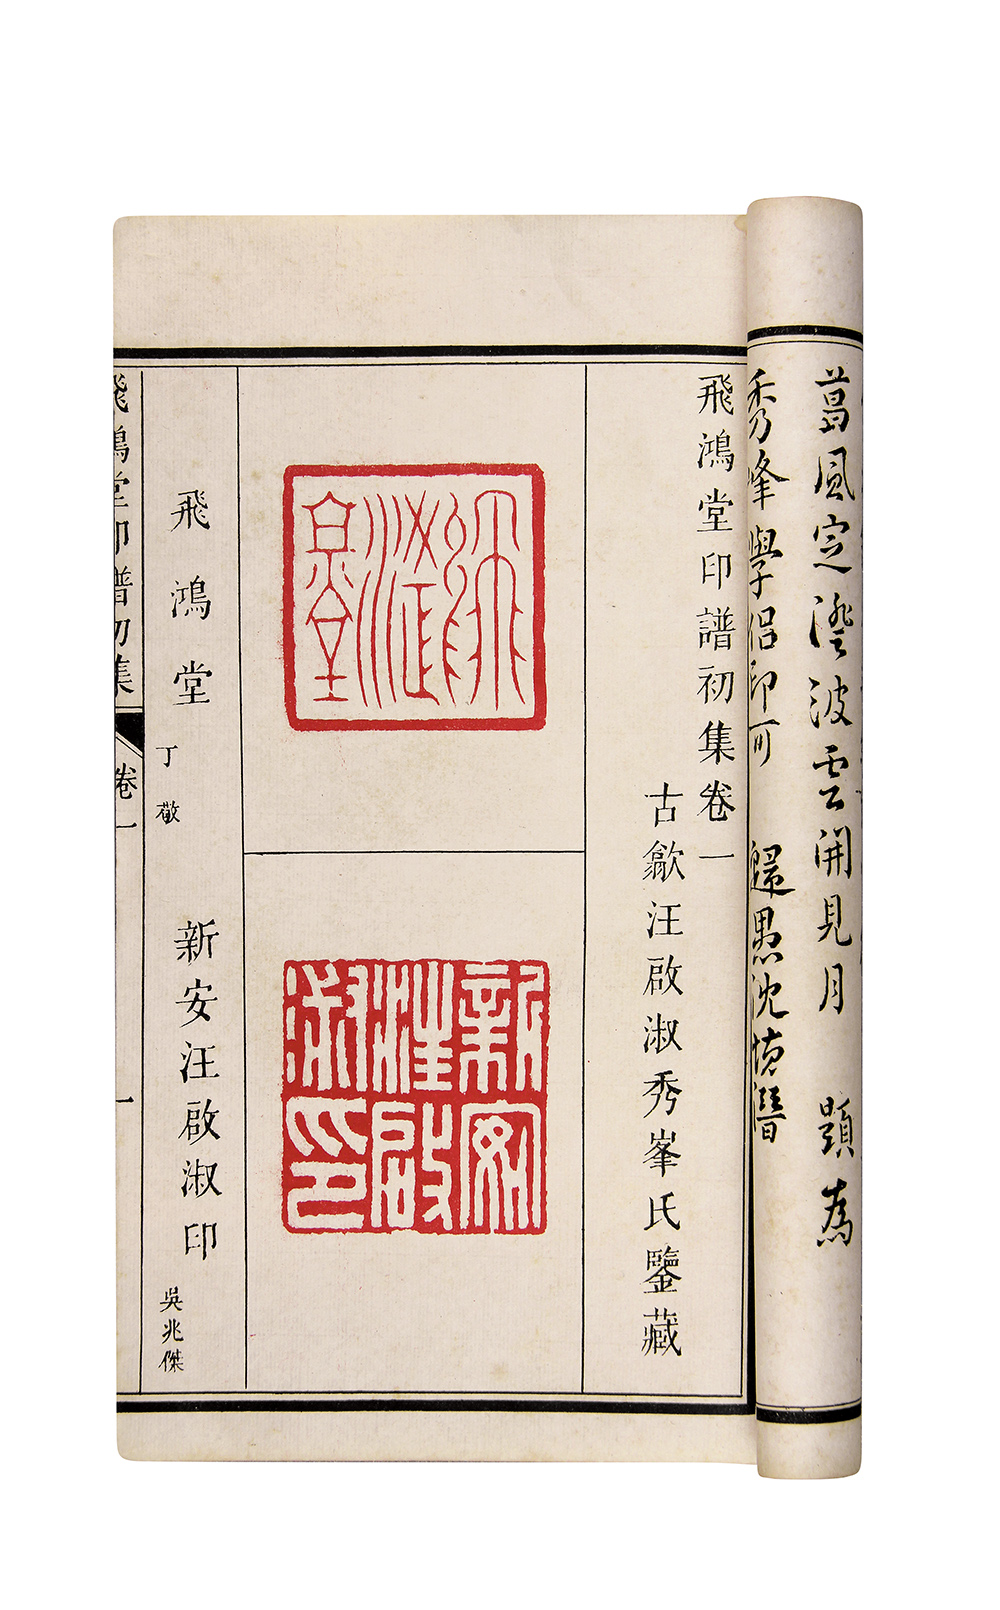 萬風定澄波雲開見月 題為
秀峰學侶印可 歸愚沈德潛
飛鴻堂印譜初集卷一
古歙汪啟淑秀峯氏鑒藏
飛鴻堂
新安汪啟淑印
飛鴻堂 丁敬
新安汪啟淑印 吳兆傑
飛鴻堂印譜初集 卷一 一